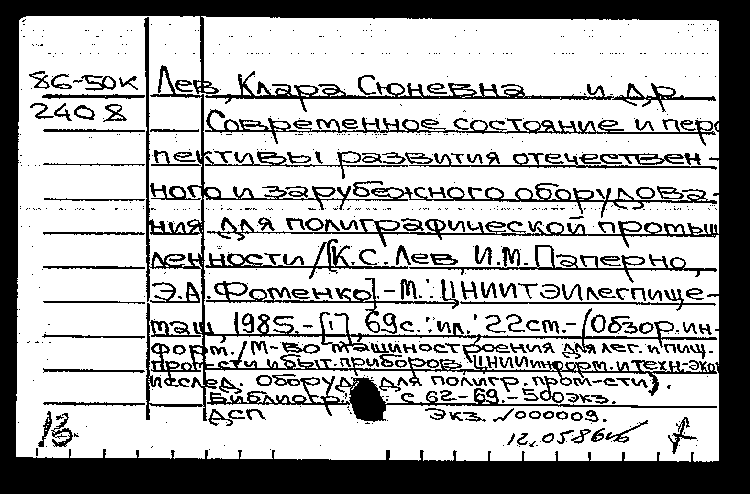 86-50к Лев, Клара Сюневна и др.
2408 Современное состояние и перс
пективы развития отечествен-
ного и зарубежного оборудова-
ния для полиграфической промыш
ленности /[К.С. Лев, И.М. Паперно,
Э.А. Фоменко]. - М.: ЦНИИТЭИлегпище-
маш, 1985. - [1], 69с.: ил.; 22см. - (Обзор. ин-
форм. / М-во машиностроения для лег. и пищ.
пром-сти и быт. приборов, ЦНИИ информ. и техн.-экон
исслед. Оборуд. для полигр. пром-сти).
Библиогр. с 62-69. - 500экз.
ДСП Экз. №000009.
13 12.05.86